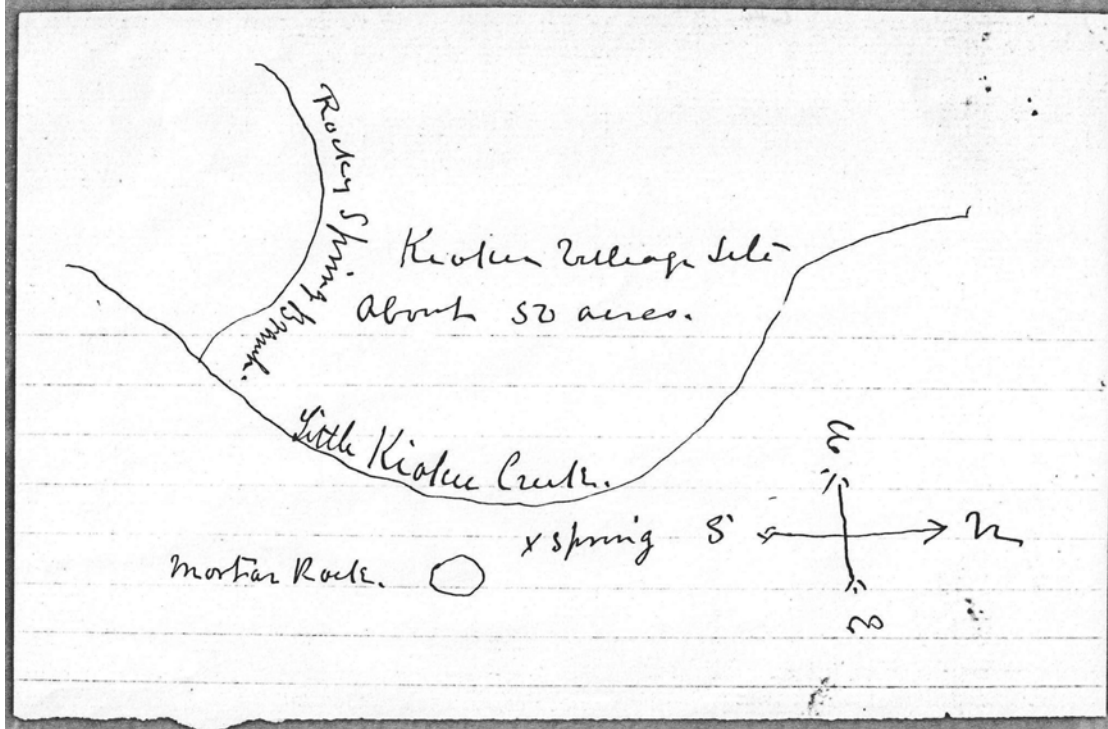 Rocky Spring Branch.
Kiokee Village Site
About 50 acres.
Little Kiokee Creek.
W
x spring
S
N
Mortar Rock.
E